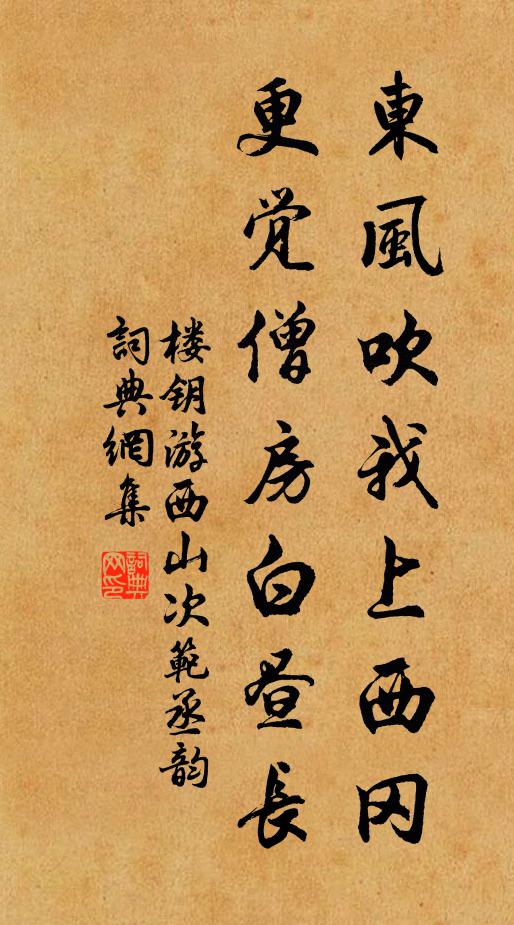 東風吹我上西冈
更觉僧房白昼長
楼钥游西山次範丞韵
詞典網集
詞典网印